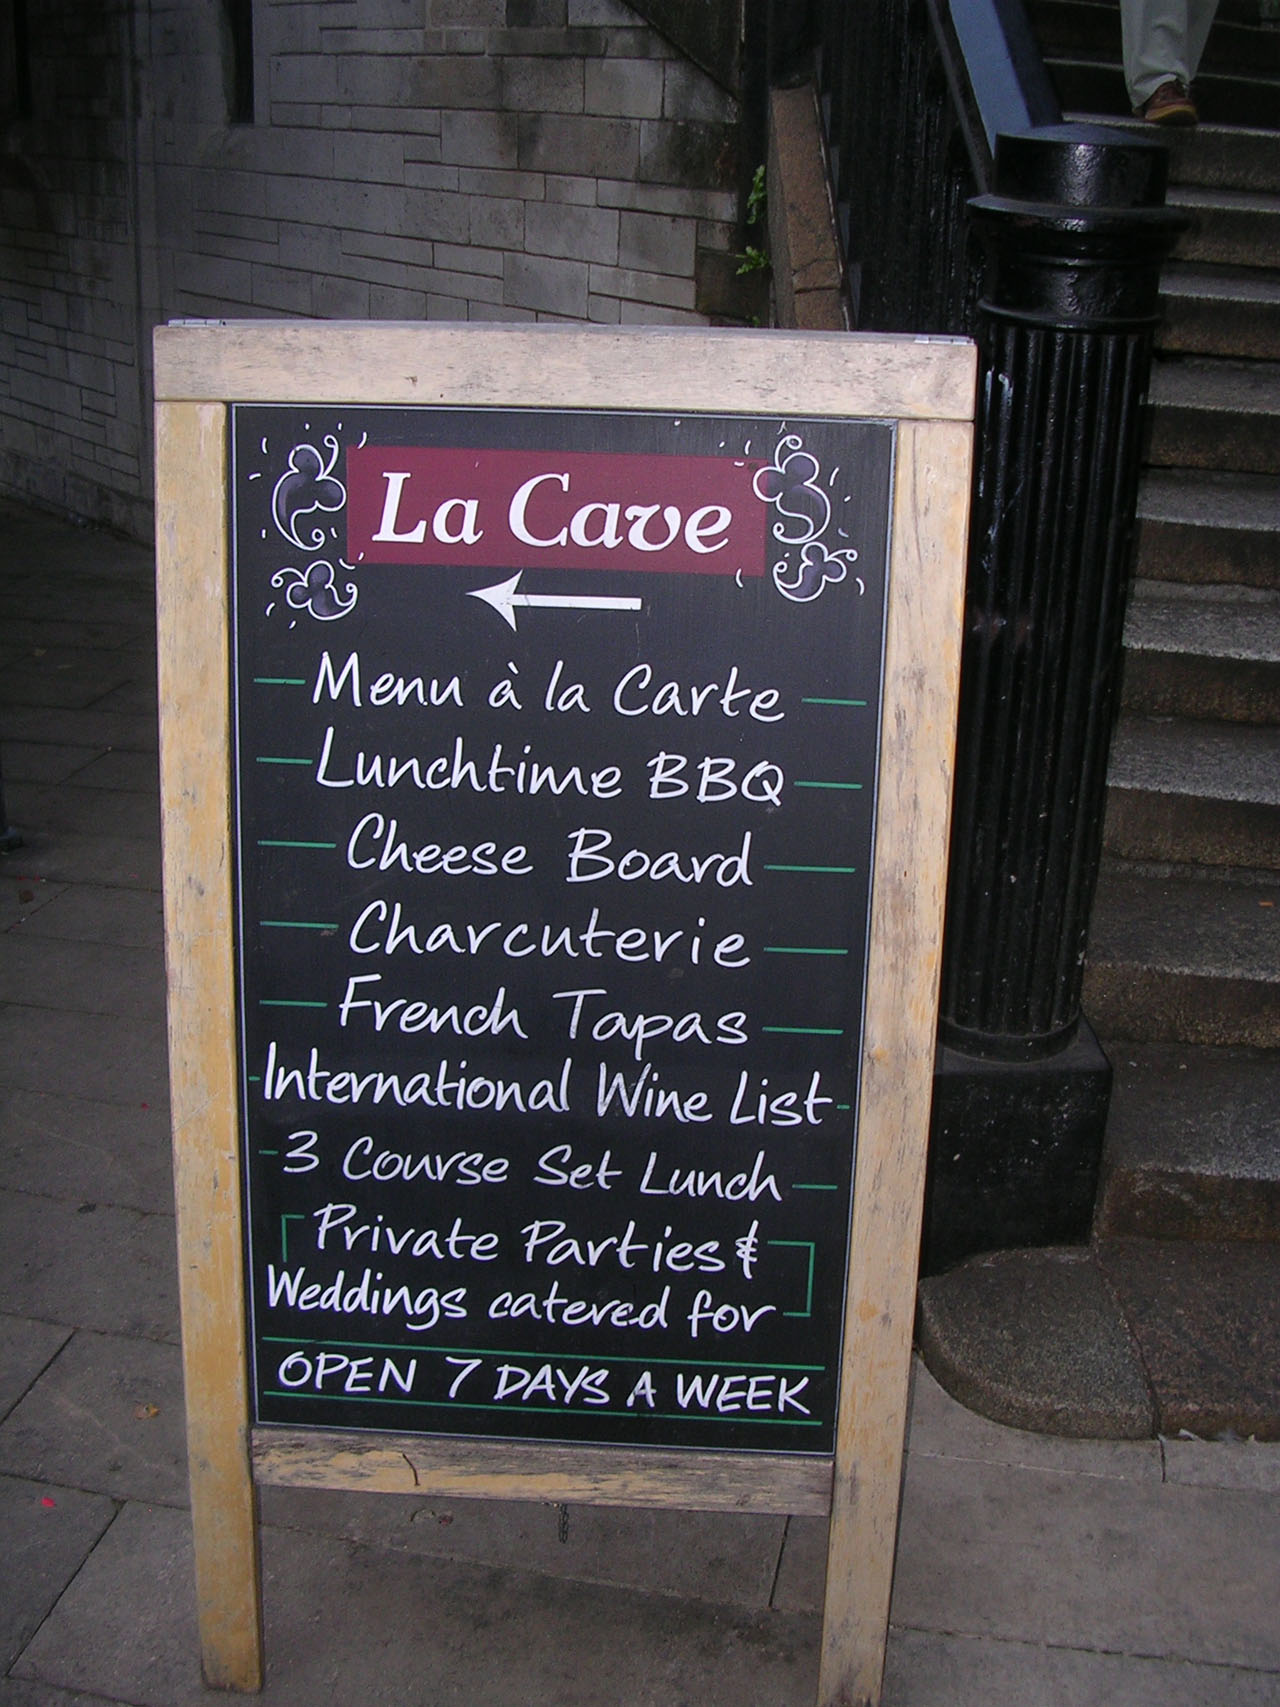 La Cave
Menu à la Carte
Lunchtime BBQ
Cheese Board
Charcuterie
French Tapas
International Wine List
3 Course Set Lunch
Private Parties &
Weddings catered for
OPEN 7 DAYS A WEEK